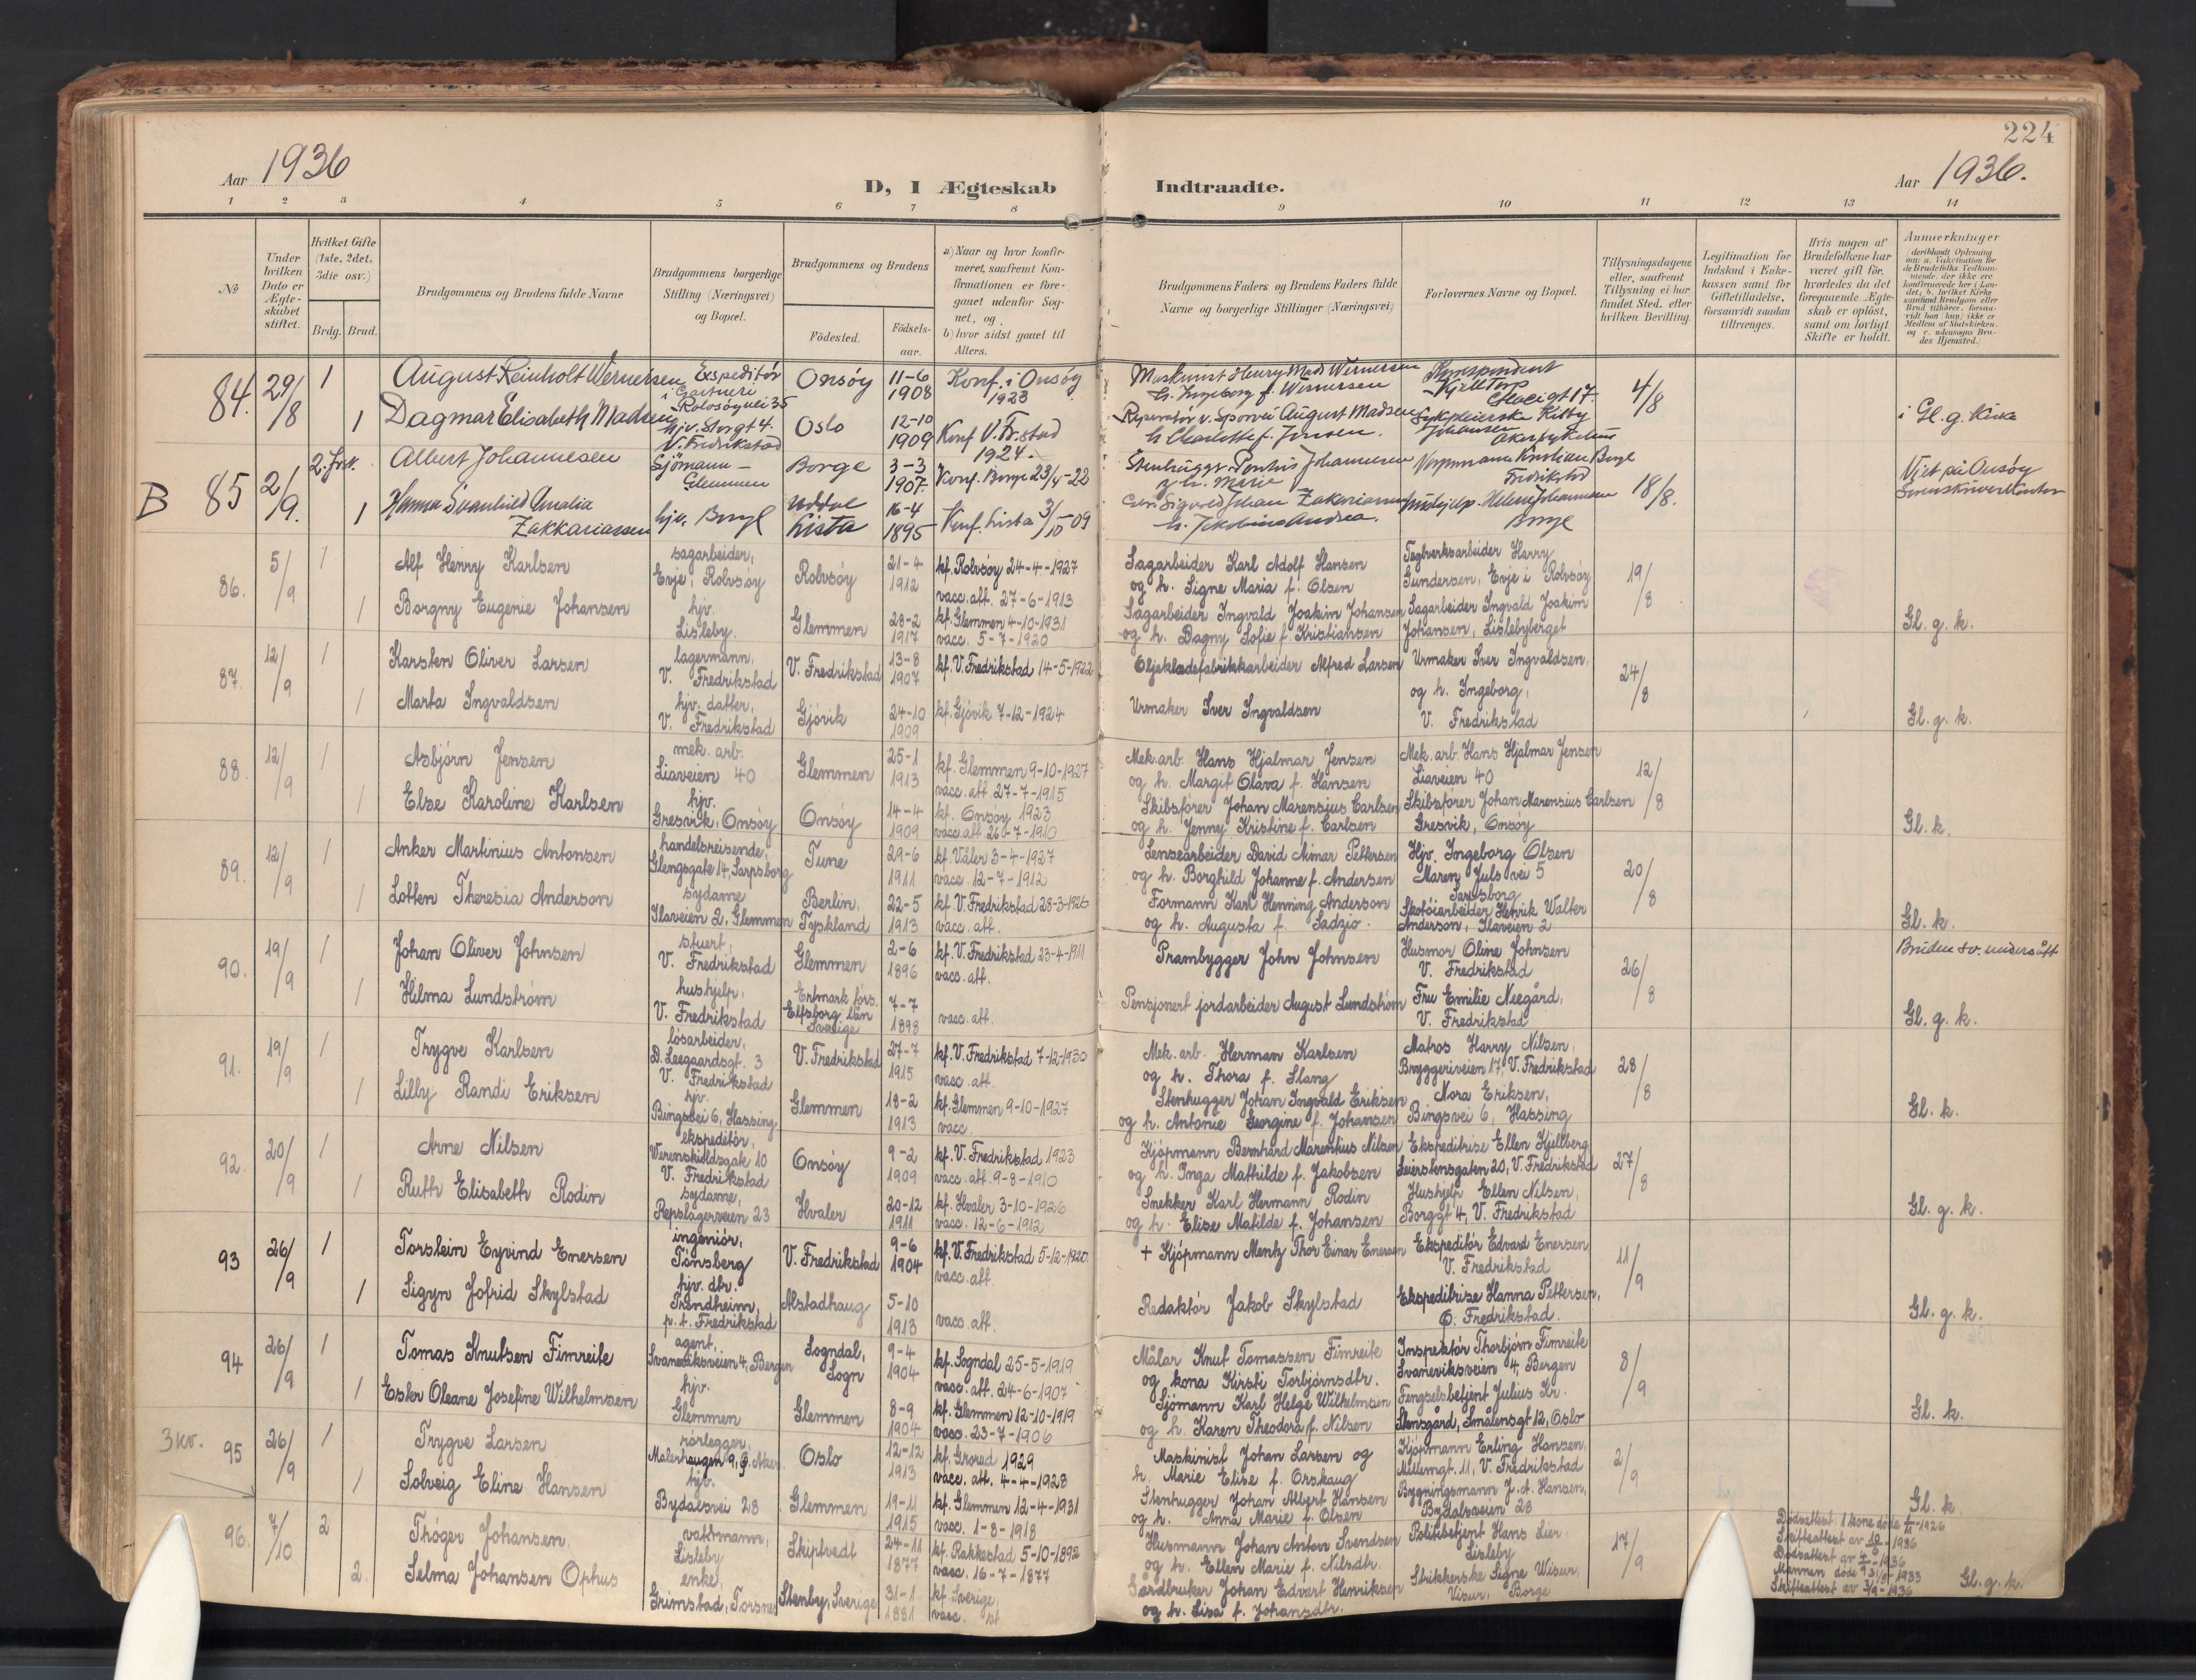 224
Aar 1936
D, I Ægteskab Indtraadte.
Aar 1936.
1 2 3 4 5 6 7 8 9 10 11 12 13 14
No
Under hvilken Dato er Ægteskabet stiftet.
Hvilket Gifte (1ste, 2det, 3die osv.)
Brdg. Brud.
Brudgommens og Brudens fulde Navne
Brudgommens borgerlige Stilling (Næringsvei) og Bopæl.
Brudgommens og Brudens
Födested. Födsels-aar.
a) Naar og hvor konfirmeret, saafremt Konfirmationen er foregaaet udenfor Sognet, og
b) hvor sidst gaaet til Alters.
Brudgommens Faders og Brudens Faders fulde Navne og borgerlige Stillinger (Næringsvei)
Forlovernes Navne og Bopæl.
Tillysningsdagene eller, saafremt Tillysning ei har fundet Sted, efter hvilken Bevilling.
Legitimation for Indskud i Enkekassen samt for Giftetilladelse, forsaavidt saadan tiltrænges.
Hvis nogen af Brudefolkene har været gift för, hvorledes da det foregaaende Ægteskab er oplöst, samt om lovligt Skifte er holdt.
Anmerkninger
84. 29/8 1 August Reinholt Wernersen Expeditör i Gartneri Rolvsöyvei 35 Onsöy 11-6 1908 Konf. i Onsöy 1923
Maskinist Henry Mads Wernersen h. Ingeborg f. Wernersen 4/8
1 Dagmar Elisabeth Madsen hjv. Storgt 4. V. Fredrikstad Oslo 12-10 1909 Konf V. Fr.stad 1924.
Reparatör v. Sporvei August Madsen h. Charlotte f. Jensen. i Gl. g. Kirke
B 85 2/9. Albert Johannesen Sjömann Glemmen Borge 3-3 1907. Konf. Borge 23/4-22
Johannesen g. h. Marie 18/8.
1 Hanna Svanhild Amalia Zakkariassen hjv. Borge Lista 16-4 1895 Konf. Lista 3/10 09
h. Jakobine Andrea. Borge
86. 5/9 1 Alf Henry Karlsen sagarbeider, Evje, Rolvsöy Rolvsöy 21-4 1912 kf. Rolvsöy 24-4-1927 vacc. att. 27-6-1913
Sagarbeider Karl Adolf Hansen og h. Signe Maria f. Olsen Teglverksarbeider Harry Gundersen, Evje i Rolvsöy 19/8
1 Borgny Eugenie Johansen hjv. Lisleby. Glemmen 28-2 1917 kf. Glemmen 4-10-1931 vacc. 5-7-1920
Sagarbeider Ingvald Joakim Johansen og h. Dagny Sofie f. Kristiansen Sagarbeider Ingvald Joakim Johansen, Lislebyberget Gl. g. k.
87. 12/9 1 Karsten Oliver Larsen lagermann, V. Fredrikstad V. Fredrikstad 13-8 1907 kf. V. Fredrikstad 14-5-1922
Oljeklædefabrikkarbeider Alfred Larsen Urmaker Iver Ingvaldsen, og h. Ingeborg, V. Fredrikstad 24/8
1 Marta Ingvaldsen hjv. datter, V. Fredrikstad Gjövik 24-10 1909 kf. Gjövik 7-12-1924
Urmaker Iver Ingvaldsen Gl. g. k.
88. 12/9 1 Asbjörn Jensen mek. arb. Liaveien 40 Glemmen 25-1 1913 kf. Glemmen 9-10-1927 vacc. att. 27-7-1915
Mek. arb. Hans Hjalmar Jensen og h. Margit Olava f. Hansen Mek. arb. Hans Hjalmar Jensen Liaveien 40 12/8
1 Else Karoline Karlsen hjv. Gresvik, Onsöy Onsöy 14-4 1909 kf. Onsöy 1923 vacc. att 26-7-1910
Skibsförer Johan Marensius Carlsen og h. Jenny Kristine f. Carlsen Skibsförer Johan Marensius Carlsen Gresvik, Onsöy Gl. k.
89. 12/9 1 Anker Martinius Antonsen handelsreisende, Glengsgate 14, Sarpsborg Tune 29-6 1911 kf. Våler 3-4-1927 vacc. 12-7-1912
Lensearbeider David Aimar Pettersen og h. Borghild Johanne f. Andersen Hjv. Ingeborg Olsen Maren Juls vei 5 Sarpsborg 20/8
1 Lotten Theresia Anderson sydame Ilaveien 2, Glemmen Berlin, Tyskland 22-5 1913 kf. V. Fredrikstad 28-3-1926 vacc. att.
Formann Karl Henning Anderson og h. Augusta f. Sadzio. Skotöiarbeider Henrik Walter Anderson, Ilaveien 2 Gl. k.
90. 19/9 1 Johan Oliver Johnsen stuert, V. Fredrikstad Glemmen 2-6 1896 kf. V. Fredrikstad 23-4-1911 vacc. att.
Prambygger John Johnsen Husmor Oline Johnsen V. Fredrikstad 26/8 Bruden sv. undersått
1 Hilma Lundström hushjelp, V. Fredrikstad Ertmark förs. Elfsborg län Sverige 7-7 1898 vacc. att.
Pensjonert jordarbeider August Lundström Fru Emilie Neegård, V. Fredrikstad Gl. g. k.
91. 19/9 1 Trygve Karlsen lösarbeider, D. Leegaardsgt. 3 V. Fredrikstad V. Fredrikstad 27-7 1915 kf. V. Fredrikstad 7-12-1930 vacc. att.
Mek. arb. Herman Karlsen og h. Thora f. Slang Matros Harry Nilsen, Bryggeriveien 17, V. Fredrikstad 28/8
1 Lilly Randi Eriksen hjv. Bingsvei 6, Hassing Glemmen 18-2 1913 kf. Glemmen 9-10-1927 vacc.
Stenhugger Johan Ingvald Eriksen og h. Antonie Georgine f. Johansen Nora Eriksen, Bingsvei 6, Hassing Gl. k.
92. 20/9 1 Arne Nilsen ekspeditör, Werenskioldsgate 10 V. Fredrikstad Onsöy 9-2 1909 kf. V. Fredrikstad 1923 vacc. att. 9-8-1910
Kjöpmann Bernhard Marentius Nilsen og h. Inga Mathilde f. Jakobsen Ekspeditrise Ellen Kjellberg Leierstensgaten 20, V. Fredrikstad 27/8
1 Ruth Elisabeth Rodin sydame, Repslagerveien 23 Hvaler 20-12 1911 kf. Hvaler 3-10-1926 vacc. 12-6-1912
Snekker Karl Hermann Rodin og h. Elise Matilde f. Johansen Hushjelp Ellen Nilsen, Borggt 4, V. Fredrikstad Gl. g. k.
93 26/9 1 Torstein Eyvind Enersen ingeniör, Tönsberg V. Fredrikstad 9-6 1904 kf. V. Fredrikstad 5-12-1920. vacc. att.
+ Kjöpmann Mentz Thor Einar Enersen Ekspeditör Edvard Enersen V. Fredrikstad 11/9
1 Sigyn Jofrid Skylstad hjv. dtr. Trondheim, p. t. Fredrikstad Alstadhaug 5-10 1913 vacc. att.
Redaktör Jakob Skylstad Ekspeditrise Hanna Pettersen, Ö. Fredrikstad. Gl. g. k.
94 26/9 1 Tomas Knutsen Fimreite agent, Svaneviksveien 4, Bergen Sogndal, Sogn 9-4 1904 kf. Sogndal 25-5-1919 vacc. att. 24-6-1907
Målar Knut Tomassen Fimreite og kona Kirsti Torbjørnsdtr. Inspektör Thorbjörn Fimreite Svaneviksveien 4, Bergen 8/9
1 Ester Oleane Josefine Wilhelmsen hjv. Glemmen Glemmen 8-9 1904 kf. Glemmen 12-10-1919 vacc. 23-7-1906
Sjömann Karl Helge Wilhelmsen og h. Karen Theodora f. Nilsen Fengselsbetjent Julius Kr. Stensgård, Smålensgt 12, Oslo Gl. k.
3 kv. 95 26/9 1 Trygve Larsen rörlegger, Malerhaugen 9, Ö. Aker. Oslo 12-12 1913 kf. Grorud 1929 vacc. att. 4-4-1928
Maskinist Johan Larsen og h. Marie Elise f. Orskaug Kjöpmann Erling Hansen, Mellemgt. 11, V. Fredrikstad 2/9
1 Solveig Eline Hansen hjv. Bydalsvei 28 Glemmen 19-11 1915 kf. Glemmen 12-4-1931 vacc. 1-8-1918
Stenhugger Johan Albert Hansen og h. Anna Marie f. Olsen Bygningsmann J. A. Hansen, Bydalsveien 28 Gl. k
96. 7/10 2 Thöger Johansen vaktmann, Lisleby Skiptvedt 24-11 1877 kf. Rakkestad 5-10-1892 vacc. 16-7-1877
Husmann Johan Anton Svendsen og h. Ellen Marie f. Nilsdtr. Politibetjent Hans Lier, Lisleby 17/9
Dödsattest. 1 kone döde 1/11-1926
Skifteattest av 10/8-1936
Dödsattest av 4/9-1936
Mannen döde 31/8-1933
Skifteattest av 3/9-1936 Gl. g. k.
2. Selma Johansen Ophus enke, Grimstad, Torsnes Stenby, Sverige 31-1 1881 kf. Sverige, vacc.
Gårdbruker Johan Edvart Henriksen og h. Lisa f. Johansdtr. Strikkerske Signe Wisur, Visur, Borge